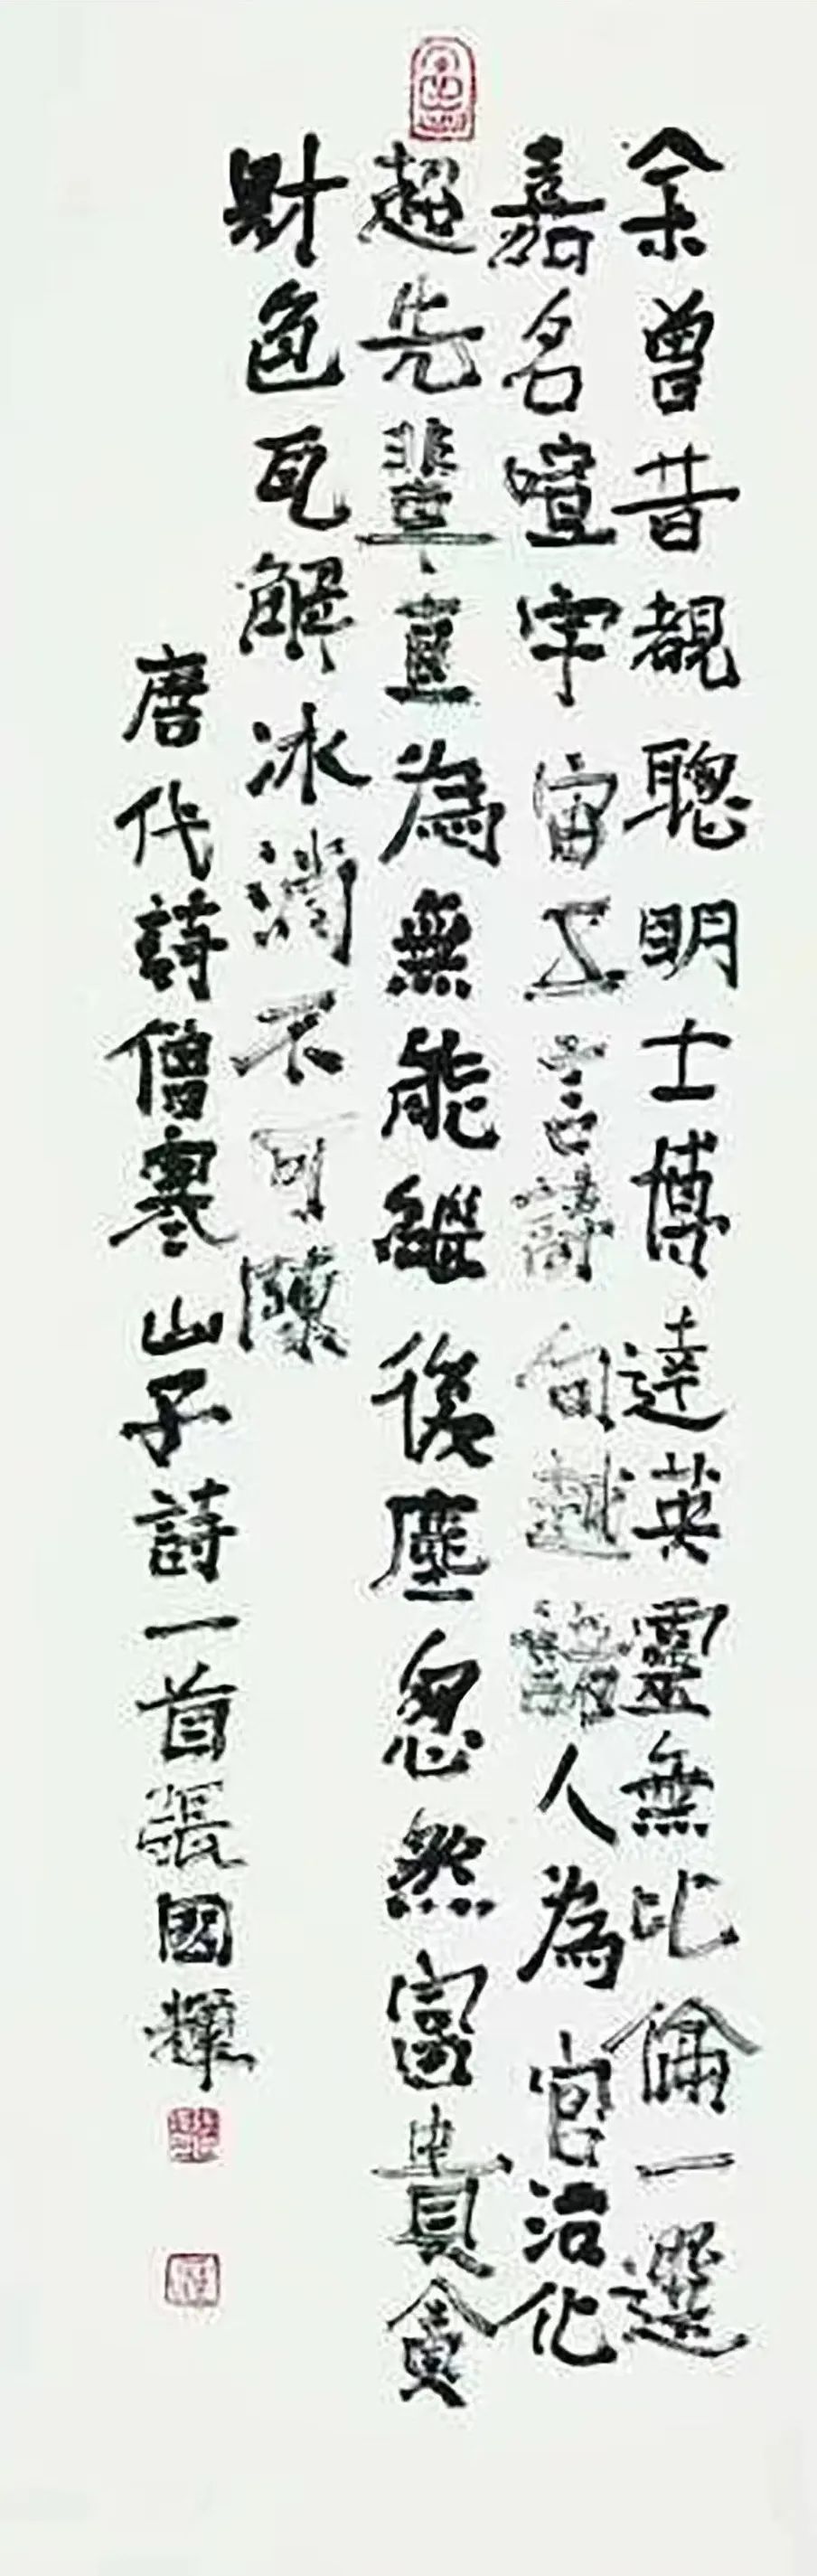 余曾昔覩聰明士博達英靈無比倫一選
嘉名喧宇宙五言詩句越諸人為官治化
超先輩直為無能繼後塵忽然富貴貪
財色瓦解冰消不可陳
唐代詩僧寒山子詩一首張國輝